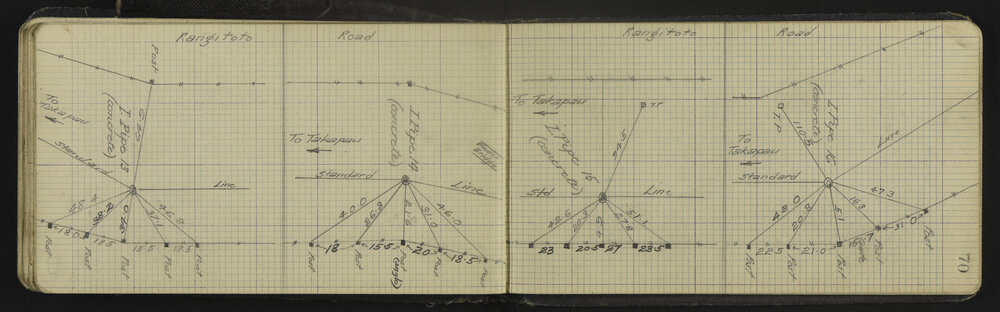 Rangitoto Road
Post
To Takapau
I. Pipe 13
(concrete)
Standard Line
48.4
38.2
37.1
46.8
18.0
18.5
15.5
18.5
Post
Post
Post
Post
To Takapau
I. Pipe 14
(concrete)
Standard Line
40.0
26.8
21.6
31.0
46.0
18
15.5
20.5
18.5
Post
Post
Post
Rangitoto Road
To Takapau
T.P.
94.5
I. Pipe 15
(concrete)
Std Line
42.6
27.8
51.1
23
20.5
27
23.5
T.P.
110.5
I. Pipe 16
(concrete)
To Takapau
Standard Line
48.0
20.8
5.1
47.3
22.5
21.0
31.0
Post
Post
Post
Post
Post
70